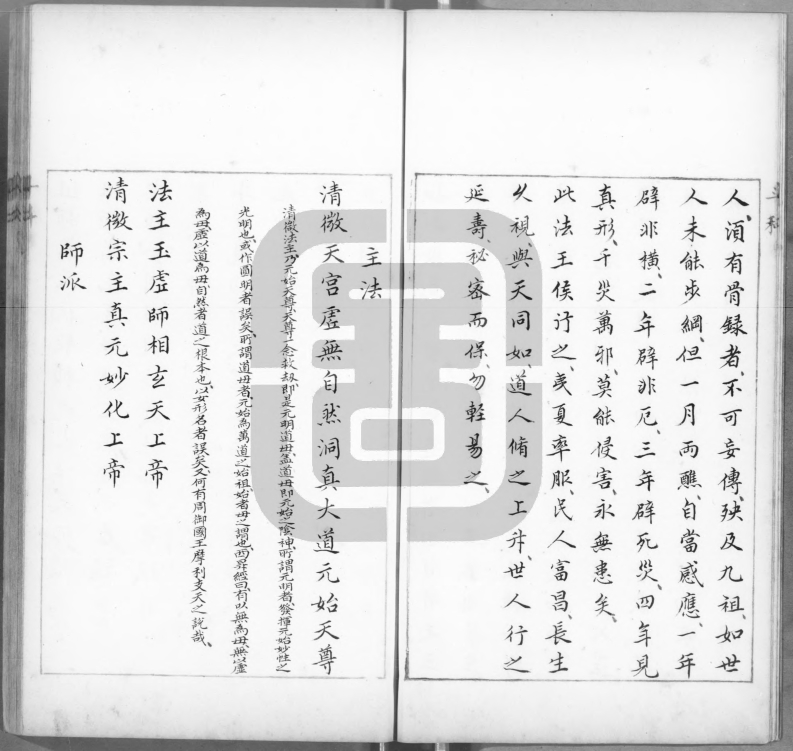 人、須有骨録者、不可妄傳、殃及九祖、如世
人未能步綱、但一月兩醮、自當感應、一年
辟非橫、二年辟非厄、三年辟死災、四年見
真形、千災萬邪、莫能侵害、永無患矣、
此法王侯行之、夷夏率服、民人富昌、長生
久視、與天同如、道人脩之上昇、世人行之
延壽、祕密而保、勿輕易之、
主法
清微天宮虛無自然洞真大道元始天尊
清微法主乃元始天尊、天尊一念救劫、即是元明道母、盖道母即元始之陰神、所謂元明者、發揮元始妙性之
光明也、或作圓明者誤矣、所謂道母者、元始為萬道之始祖、始者母之謂也、西昇經曰、有以無為母、無以虛
為母、虛以道為母、自然者道之根本也、以女形名者誤矣、又何有周御國王摩利支天之說哉、
法主玉虛師相玄天上帝
清微宗主真元妙化上帝
師派